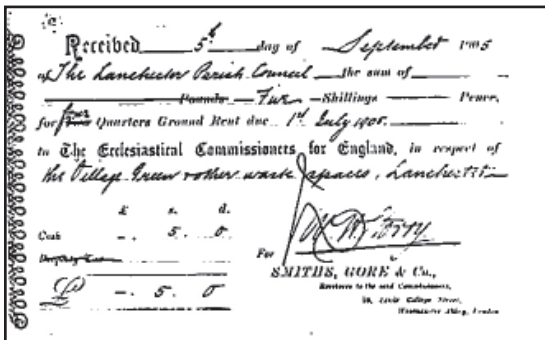 Received 5th day of September 1905
of The Lanchester Parish Council the sum of
Pounds Five Shillings Pence,
for four Quarters Ground Rent due 1st July 1905
to The Ecclesiastical Commissioners for England, in respect of
the Village Green & other waste spaces, Lanchester
£ s. d.
Cash -. 5. 0
Property Tax
£ -. 5. 0
For
SMITHS, GORE & Co.,
Receivers to the said Commissioners,
College Street,
Westminster Abbey, London